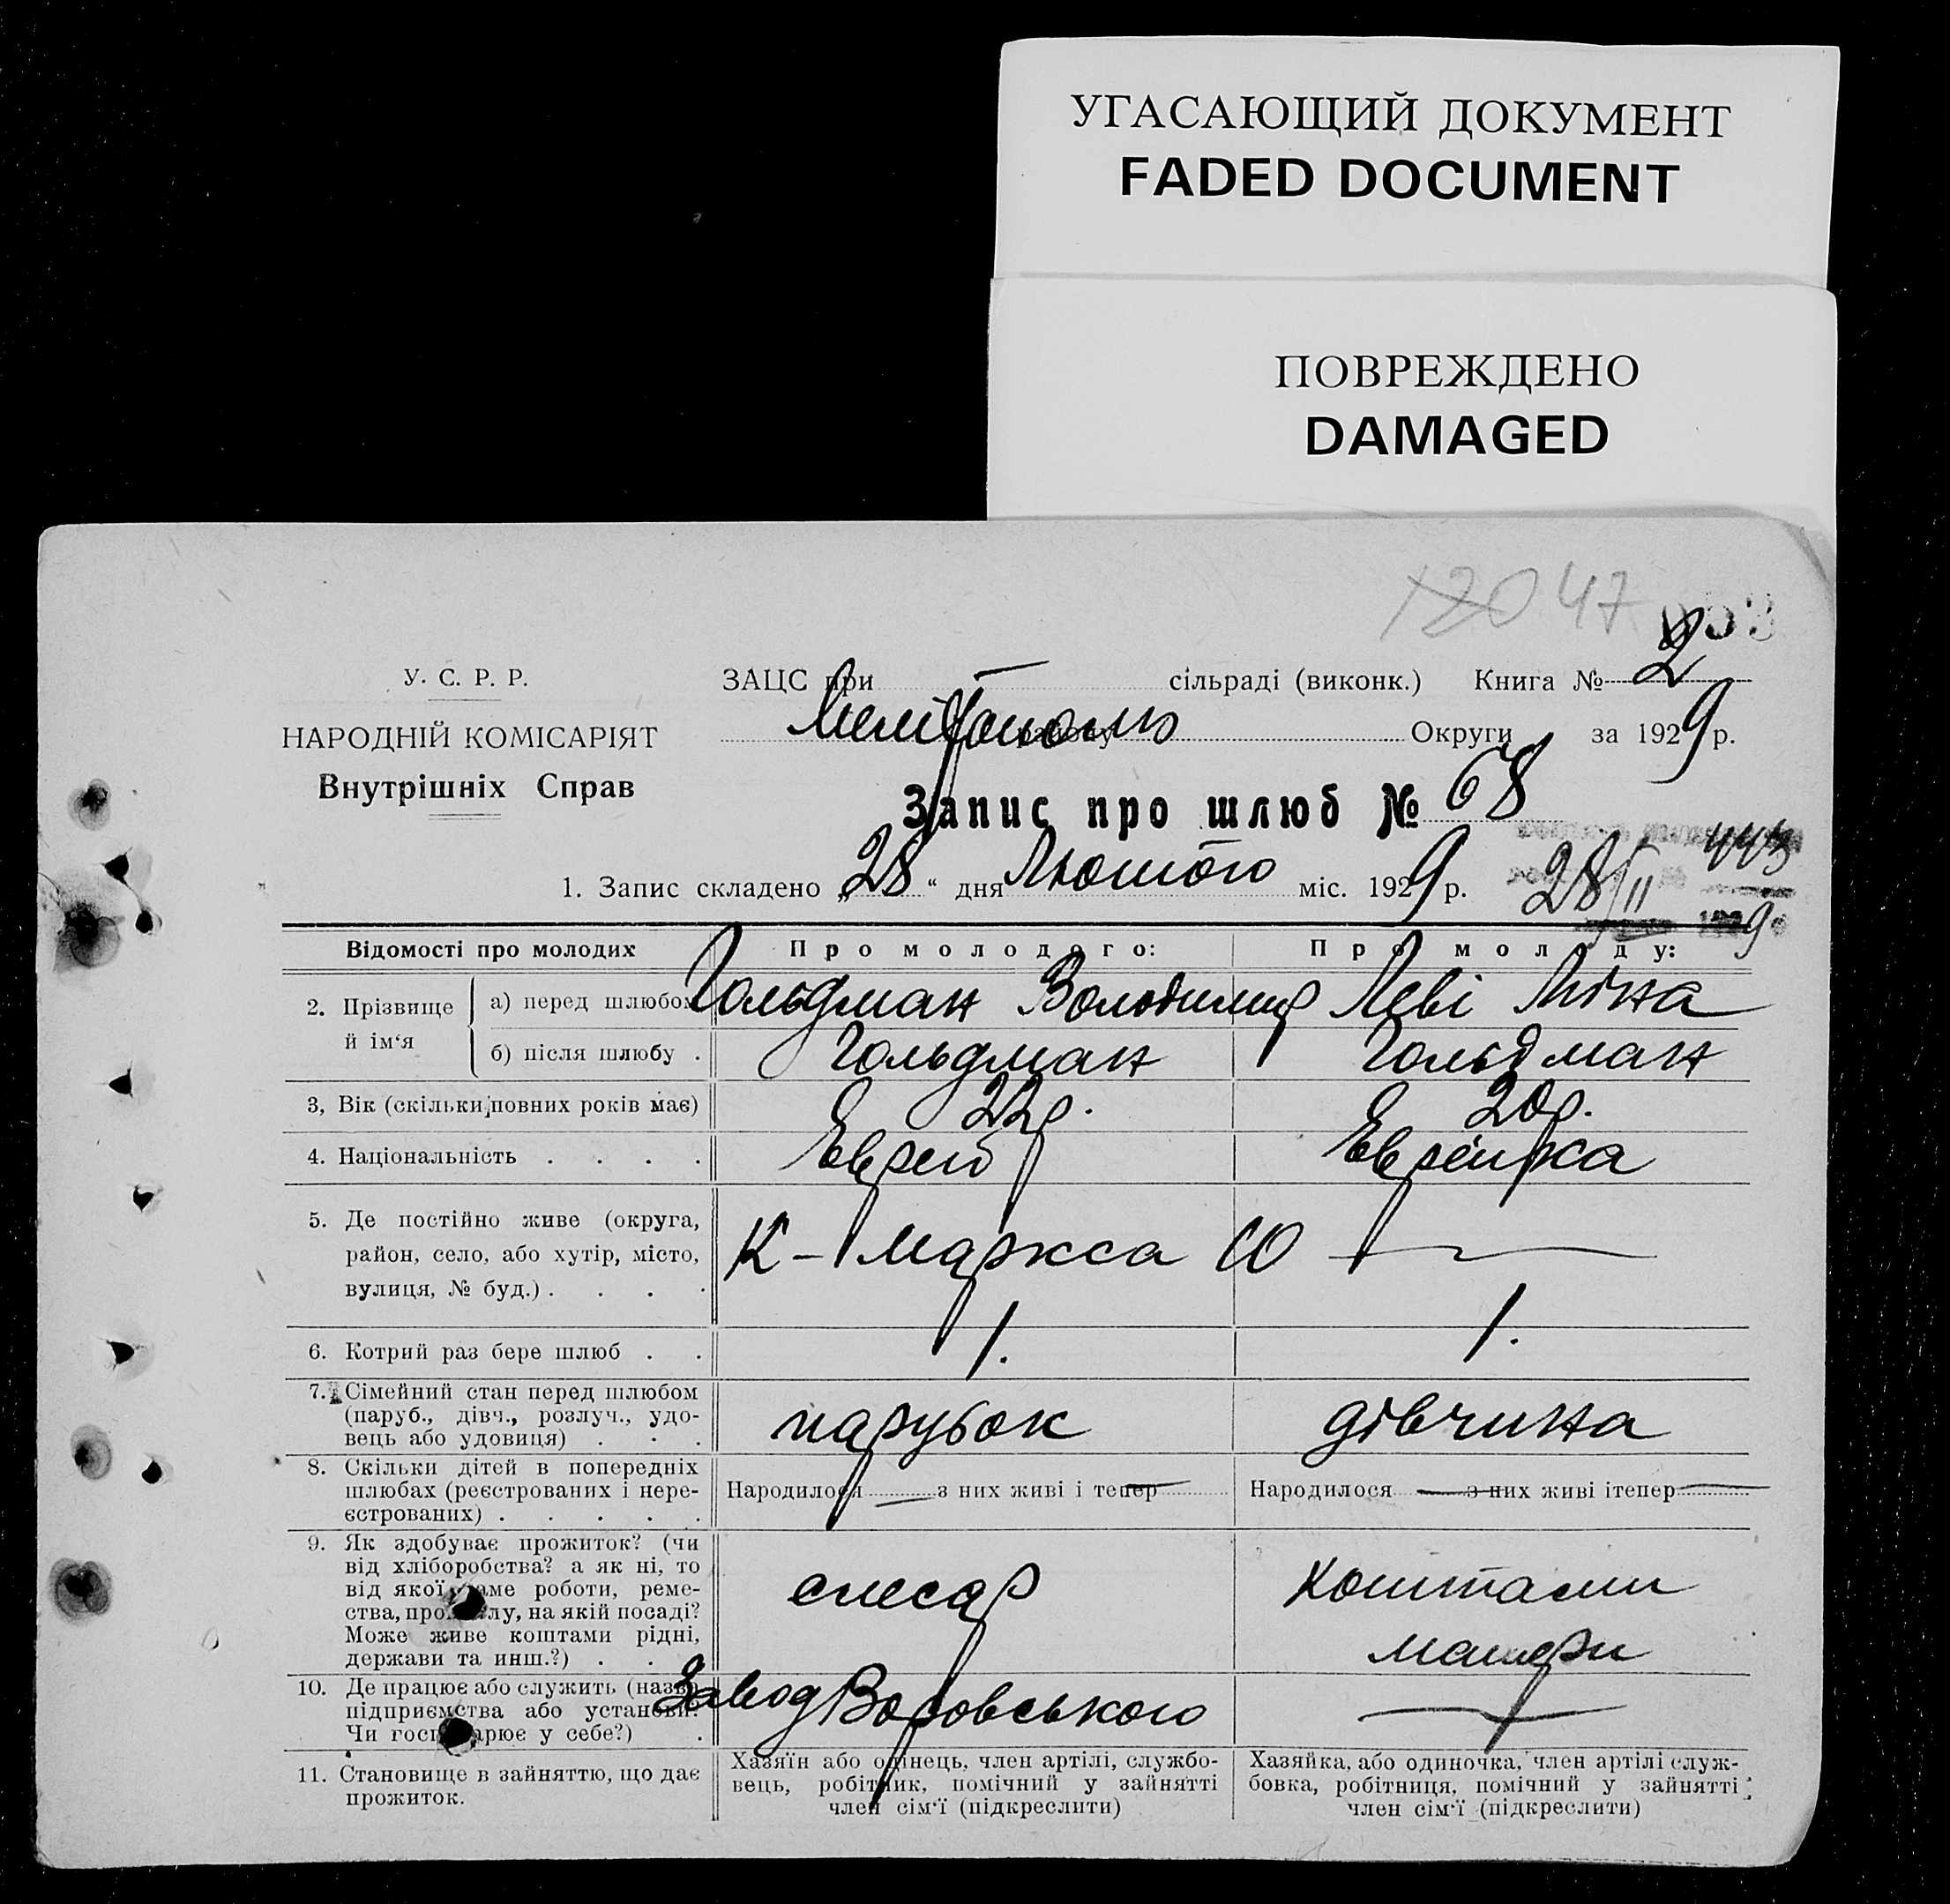 УГАСАЮЩИЙ ДОКУМЕНТ
FADED DOCUMENT
ПОВРЕЖДЕНО
DAMAGED
47
У. С. Р. Р.
НАРОДНІЙ КОМІСАРІЯТ
Внутрішніх Справ
ЗАЦС при сільраді (виконк.) Книга № 2
Мелітополь Округи за 1929 р.
Запис про шлюб № 68
1. Запис складено „28“ дня Лютого міс. 1929 р.
28/II 443
Відомості про молодих
Про молодого:
Про молоду:
2. Прізвище й ім‘я
а) перед шлюбом Гольдман Володимир Леві Ліна
б) після шлюбу . Гольдман Гольдман
3, Вік (скільки повних років має) 22р. 20р.
4. Національність . . . . Еврей Еврейка
5. Де постійно живе (округа,
район, село, або хутір, місто,
вулиця, № буд.) . . . .
К-Маркса 10 —
6. Котрий раз бере шлюб . . 1. 1.
7. Сімейний стан перед шлюбом
(паруб., дівч., розлуч., удо-
вець або удовиця) . . .
парубок дівчина
8. Скільки дітей в попередніх
шлюбах (реєстрованих і нере-
єстрованих) . . . . .
Народилося — з них живі і тепер —
Народилося — з них живі ітепер —
9. Як здобуває прожиток? (чи
від хліборобства? а як ні, то
від якої саме роботи, реме-
ства, промислу, на якій посаді?
Може живе коштами рідні,
держави та инш.?) . . .
слесар
Коштами
матери
10. Де працює або служить (назва
підприємства або установи.
Чи господарює у себе?) .
Завод Воровського —
11. Становище в зайняттю, що дає
прожиток.
Хазяїн або одінець, член артілі, службо-
вець, робітник, помічний у зайнятті
член сім‘ї (підкреслити)
Хазяйка, або одиночка, член артілі служ-
бовка, робітниця, помічний у зайнятті
член сім‘ї (підкреслити)